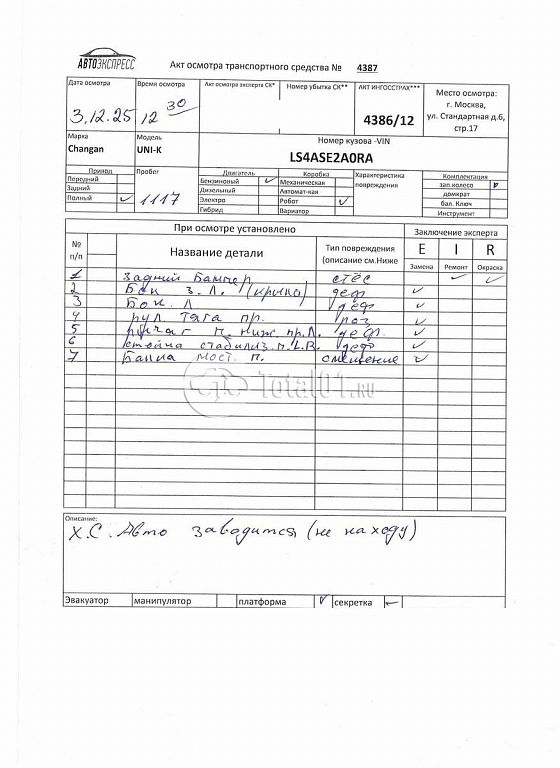 АВТОЭКСПРЕСС
Акт осмотра транспортного средства № 4387
Дата осмотра Время осмотра Акт осмотра эксперта СК* Номер убытка СК** АКТ ИНГОССТРАХ*** Место осмотра:
г. Москва,
ул. Стандартная д.6,
стр.17
3.12.25 12 30 4386/12
Марка Модель Номер кузова -VIN
Changan UNI-K LS4ASE2A0RA
Привод Пробег Двигатель Коробка Характеристика повреждения Комплектация
Передний Бензиновый ✓ Механическая зап.колесо ✓
Задний Дизельный Автомат-кая домкрат
Полный ✓ 1117 Электро Робот ✓ бал. Ключ
Гибрид Вариатор Инструмент
При осмотре установлено Заключение эксперта
№ п/п Название детали Тип повреждения (описание см.Ниже E I R
Замена Ремонт Окраска
1 Задний Бампер стёс ✓ ✓
2 Бок з. Л. (крыло) деф ✓
3 Бок. Л деф ✓
4 рул тяга пр. ✓
5 рычаг п. ниж. пр.Л. деф. ✓
6 стойка стабилиз. п.L.R. деф ✓
7 Балка мост. п. смещение ✓
Total01.RU
Описание:
Х.С. Авто заводится (не на ходу)
Эвакуатор манипулятор платформа ✓ секретка ✓